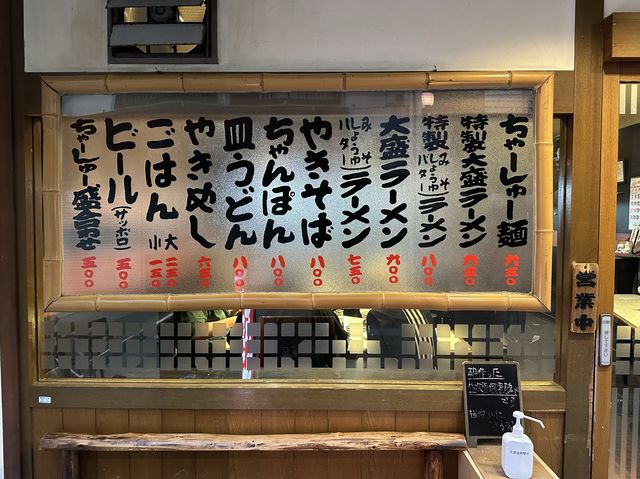 ちゃーしゅー麺 九五〇
特製大盛ラーメン 九五〇
特製 みそ しょうゆ バター ラーメン 八〇〇
大盛ラーメン 九〇〇
みそ しょうゆ バター ラーメン 七五〇
やきそば 八〇〇
ちゃんぽん 八〇〇
皿うどん 八〇〇
やきめし 六五〇
ごはん 大 二五〇 小 一五〇
ビール(サッポロ) 五〇〇
ちゃーしゅー盛合せ 五〇〇
営業中